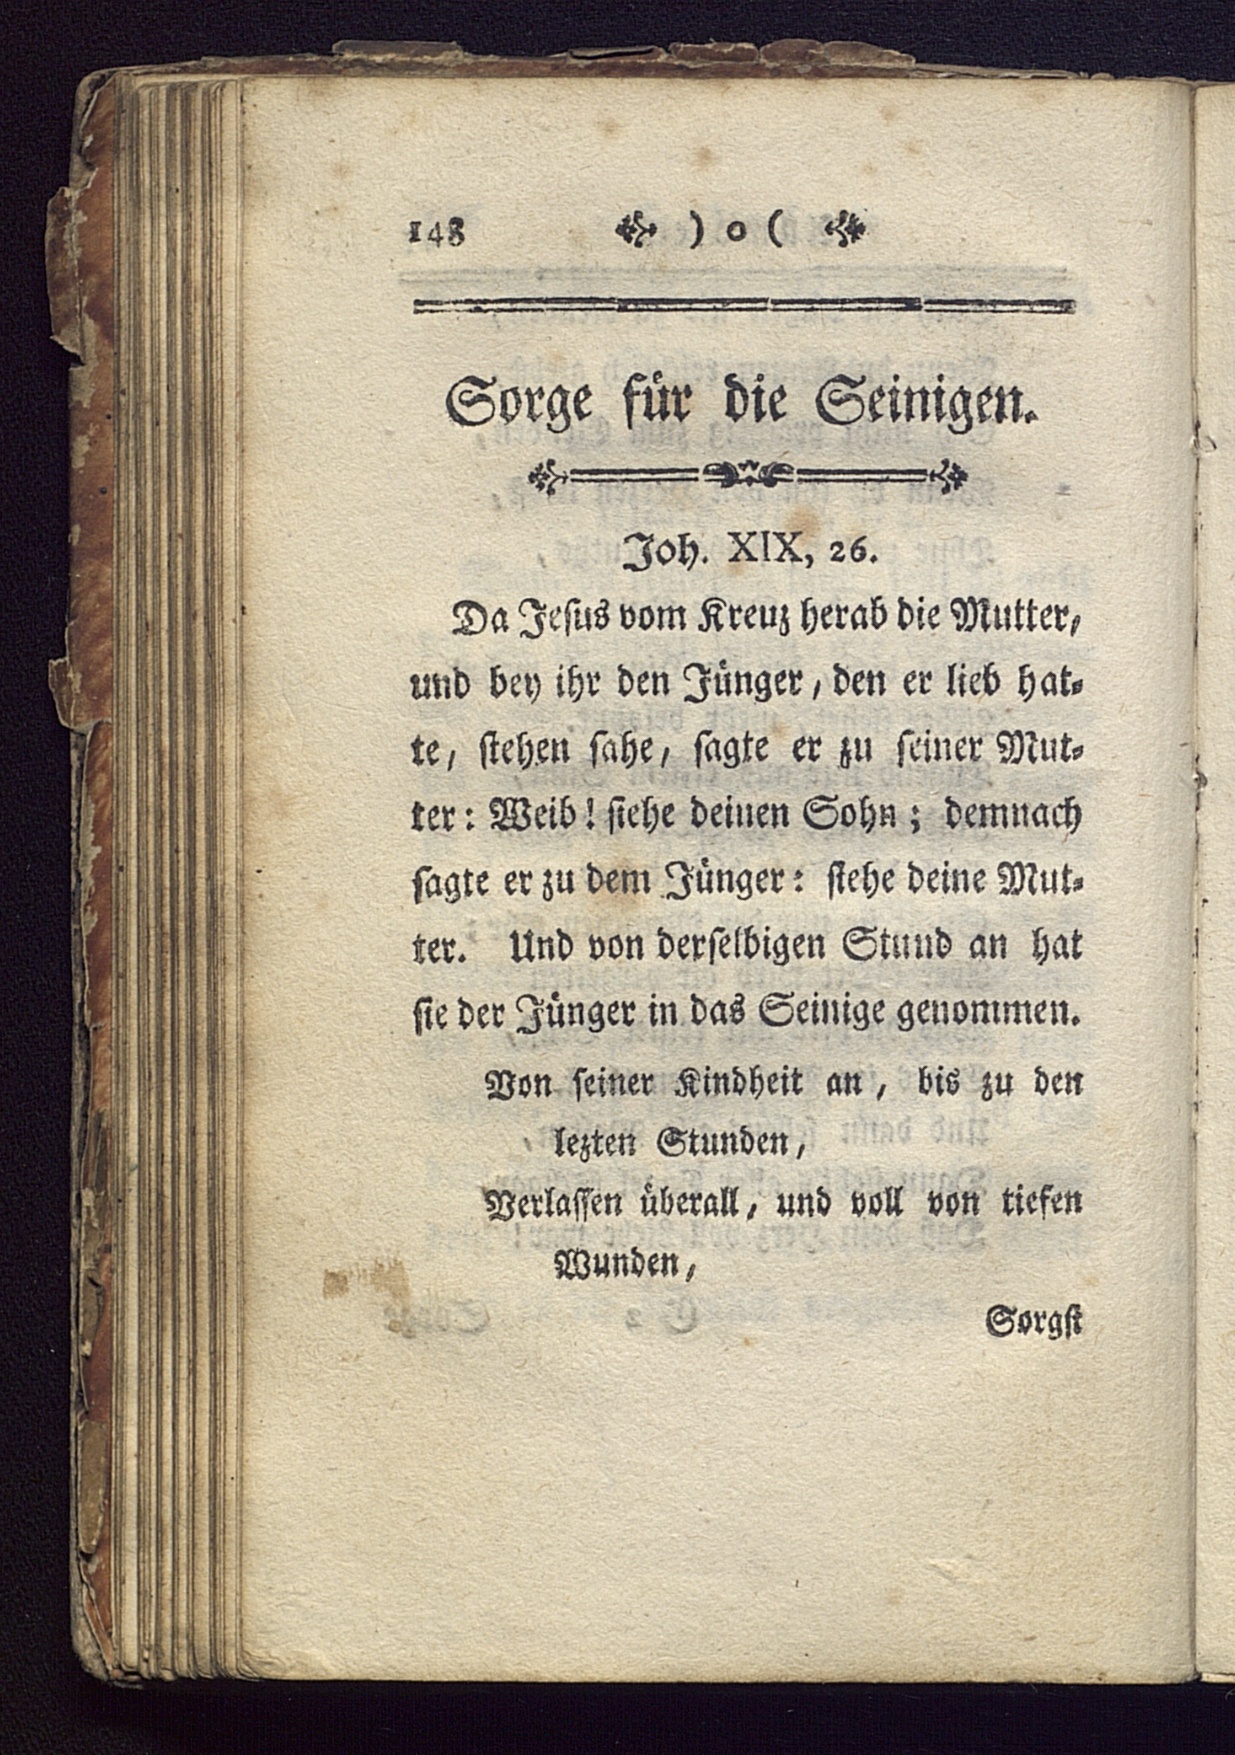 148 ) o (
Sorge für die Seinigen.
Joh. XIX, 26.
Da Jeſus vom Kreuz herab die Mutter,
und bey ihr den Jünger, den er lieb hat-
te, ſtehen ſahe, ſagte er zu ſeiner Mut-
ter: Weib! ſiehe deinen Sohn; demnach
ſagte er zu dem Jünger: ſiehe deine Mut-
ter. Und von derſelbigen Stund an hat
ſie der Jünger in das Seinige genommen.
Von ſeiner Kindheit an, bis zu den
lezten Stunden,
Verlaſſen überall, und voll von tiefen
Wunden,
Sorgſt